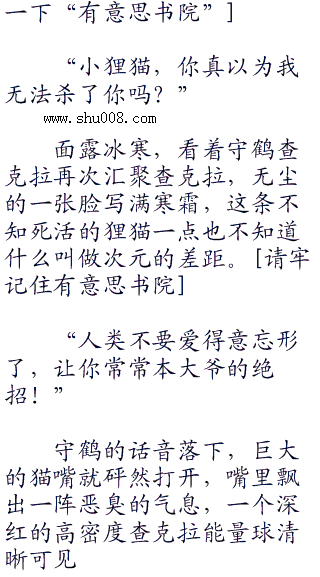 一下“有意思书院”]
“小狸猫，你真以为我
无法杀了你吗？”
www.shu008.com
面露冰寒，看着守鹤查
克拉再次汇聚查克拉，无尘
的一张脸写满寒霜，这条不
知死活的狸猫一点也不知道
什么叫做次元的差距。[请牢
记住有意思书院]
“人类不要爱得意忘形
了，让你常常本大爷的绝
招！”
守鹤的话音落下，巨大
的猫嘴就砰然打开，嘴里飘
出一阵恶臭的气息，一个深
红的高密度查克拉能量球清
晰可见